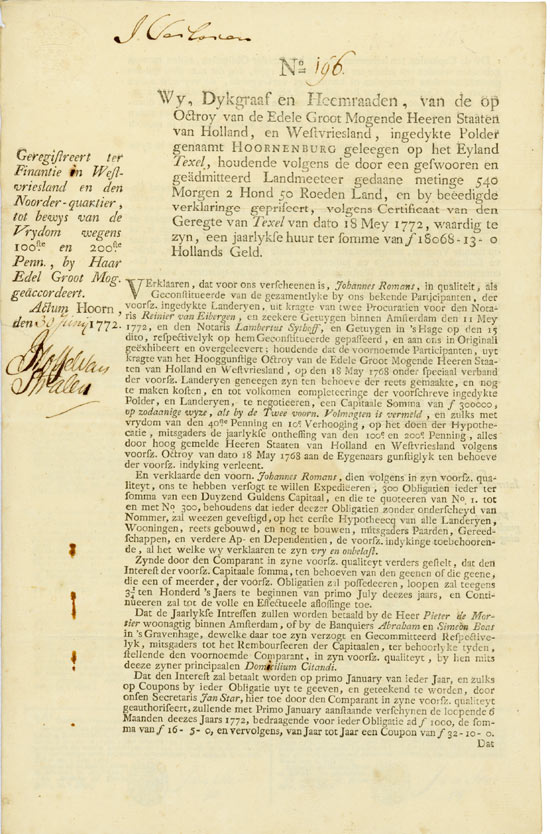 N.o 196.
Wy, Dykgraaf en Heemraaden, van de op
Octroy van de Edele Groot Mogende Heeren Staaten
van Holland, en Westvriesland, ingedykte Polder
genaamt HOORNENBURG geleegen op het Eyland
Texel, houdende volgens de door een geswooren en
geädmitteerd Landmeeter gedaane metinge 540
Morgen 2 Hond 50 Roeden Land, en by beëedigde
verklaringe gepriseert, volgens Certificaat van den
Geregte van Texel van dato 18 Mey 1772, waardig te
zyn, een jaarlykse huur ter somme van f 18068-13-0
Hollands Geld.
Geregistreert ter
Finantie in West-
vriesland en den
Noorder-quartier,
tot bewys van de
Vrydom wegens
100ste en 200ste
Penn., by Haar
Edel Groot Mog.
geäccordeert.
Actum Hoorn,
den 30 Juny 1772.
VErklaaren, dat voor ons verscheenen is, Johannes Romans, in qualiteit, als
Geconstitueerde van de gezamentlyke by ons bekende Participanten, der
voorsz. ingedykte Landeryen, uit kragte van twee Procuratien voor den Nota-
ris Reinier van Eibergen, en zeekere Getuygen binnen Amsterdam den 11 Mey
1772, en den Notaris Lambertus Sythoff, en Getuygen in 's Hage op den 15
dito, respectivelyk op hem Geconstitueerde gepasseerd, en aan ons in Originali
geëxhibeert en overgeleevert; houdende dat de voornoemde Participanten, uyt
kragte van het Hooggunstige Octroy van de Edele Groot Mogende Heeren Staa-
ten van Holland en Westvriesland, op den 18 May 1768 onder speciaal verband
der voorsz. Landeryen geneegen zyn ten behoeve der reets gemaakte, en nog
te maken kosten, en tot volkomen completeeringe der voorschreve ingedykte
Polder, en Landeryen, te negotieeren, een Capitaale Somma van f 300000,
op zodaanige wyze, als by de Twee voorn. Volmagten is vermeld, en zulks met
vrydom van den 40ste Penning en 10e Verhooging, op het doen der Hypothe-
catie, mitsgaders de jaarlykse ontheffing van den 100e en 200e Penning, alles
door hoog gemelde Heeren Staaten van Holland en Westvriesland volgens
voorsz. Octroy van dato 18 May 1768 aan de Eygenaars gunstiglyk ten behoeve
der voorsz. indyking verleent.
En verklaarde den voorn. Johannes Romans, dien volgens in zyn voorsz. qua-
liteyt, ons te hebben versogt te willen Expedieeren, 300 Obligatien ieder ter
somma van een Duyzend Guldens Capitaal, en die te quoteeren van No. 1. tot
en met No. 300, behoudens dat ideder deezer Obligatien zonder onderscheyd van
Nommer, zal weezen gevestigd, op het eerste Hypotheecq van alle Landeryen,
Wooningen, reets gebouwd, en nog te bouwen, mitsgaders Paarden, Gereed-
schappen, en verdere Ap- en Dependentien, de voorsz. indykinge toebehooren-
de, al het welke wy verklaaren te zyn vry en onbelast.
Zynde door den Comparant in zyne voorsz. qualiteyt verders gestelt, dat den
Interest der voorsz. Capitaale somma, ten behoeven van den geenen of die geene,
die een of meerder, der voorsz. Obligatien zal possedeeren, loopen zal teegens
3¼ ten Honderd 's Jaers te beginnen van primo July deezes jaars, en Conti-
nueeren zal tot de volle en Effectueele aflossinge toe.
Dat de Jaarlykse Intressen zullen worden betaald by de Heer Pieter de Mor-
tier woonagtig binnen Amsterdam, of by de Banquiers Abraham en Simeon Boas
in 's Gravenhage, dewelke daar toe zyn verzogt en Gecommitteerd Respective-
lyk, mitsgaders tot het Rembourseeren der Capitaalen, ter behoorlyke tyden,
stellende den voornoemde Comparant, in zyn voorsz. qualiteyt, by hen mits
deeze zyner principaalen Domicilium Citandi.
Dat den Interest zal betaalt worden op primo January van ieder Jaar, en zulks
op Coupons by ieder Obligatie uyt te geeven, en geteekend te worden, door
onsen Secretaris Jan Star, hier toe door den Comparant in zyne voorsz. qualiteyt
geauthoriseert, zullende met Primo January aanstaande verschynen de loopende 6
Maanden deezes Jaars 1772, bedraagende voor ieder Obligatie ad f 1000, de som-
ma van f 16-5-0, en vervolgens, van Jaar tot Jaar een Coupon van f 32-10-0.
Dat